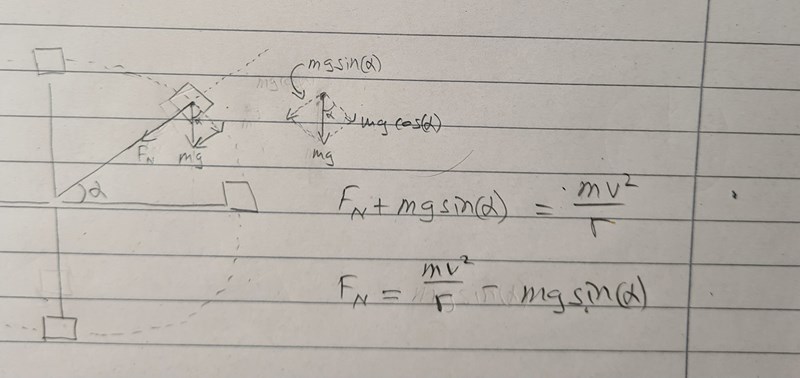 mgsin(α)
α
mg cos(α)
mg
α
F_N
mg
α
F_N + mgsin(α) = mv²/r
F_N = mv²/r - mgsin(α)